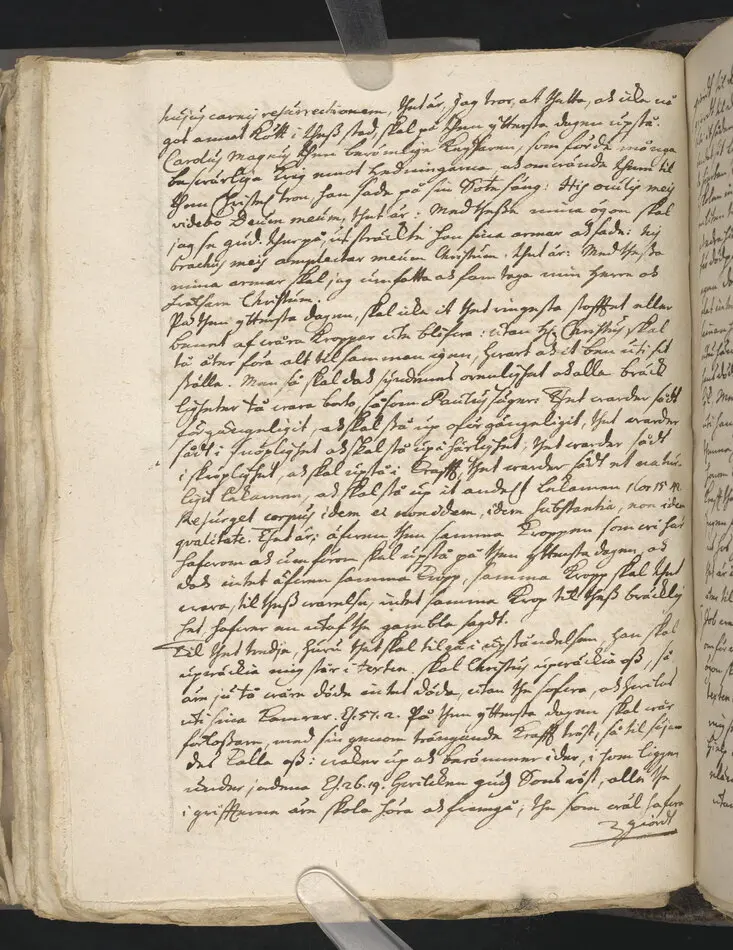 hujus carnis resurrectionem, thet är, Jag tror, at thetta, och icke nå
got annat kött i theß stad, skal på then ytterste dagen upstå.
Carolus Magnus then berömlige Keysaren, som förde många
beswärlige krig emot hedningarna at omwända them til
then Christne tron, han sade på sin Sotesäng: His oculis meis
videbo Deum meum, thet är: Med theßa mina ögon skal
jag se gud. therpå utsträckte han sina armar och sade: his
brachiis meis amplectar meum Christum, thet är: Med theßa
mina armar skal jag umfatta och famtaga min Herre och
Frälsare Christum.
På then ytterste dagen, skal icke it thet ringesta stofftet eller
benet af wåra kroppar ute blifwa: utan H. Christus skal
tå åter föra alt tilsamman igen, hwart och it ben uti sit
ställe. Men så skal doch syndenes orenlighet och alla bräck
ligheter tå wara borto, såsom Paulus säger: Thet warder sådt
förgängeligit, och skal stå up oförgängeligit, thet warder
sådt i snöplighet och skal stå up i härlighet; thet warder sådt
i skröplighet, och skal upstå i krafft, thet warder sådt et natur
ligit lekamen, och skal stå up it andeligt lekamen 1 Cor 15
Resurget corpus idem et non idem, idem substantia, non idem
qvalitate. Thet är: äfwen then samma kroppen som wi här
hafwom och umförom skal upstå på then ytterste dagen, och
doch intet äfwen samma kropp, samma kropp skal thet
wara, til theß warelse, intet samma krop til theß bräcklig
het, hafwer en utaf the gamble sagdt.
Til thet tredje, huru thet skal tilgå i upståndelsen, han skal
upwäckia mig står i texten, skal Christus upwäckia oß, så
äre ju tå wåre döde intet döde, utan the sofwa, och hwilas
uti sina kamrar. Es. 57. 2. På then ytterste dagen skal wår
förloßare, med sin genom trängande krafft röst, så til säjan
des kalla oß: waker up och berömmer eder, i som liggen
under jordene Es. 26. 19. hwilken gudz Sons röst, alle the
i griffterne äre skola höra och framgå; the som wäl hafwa
giordt